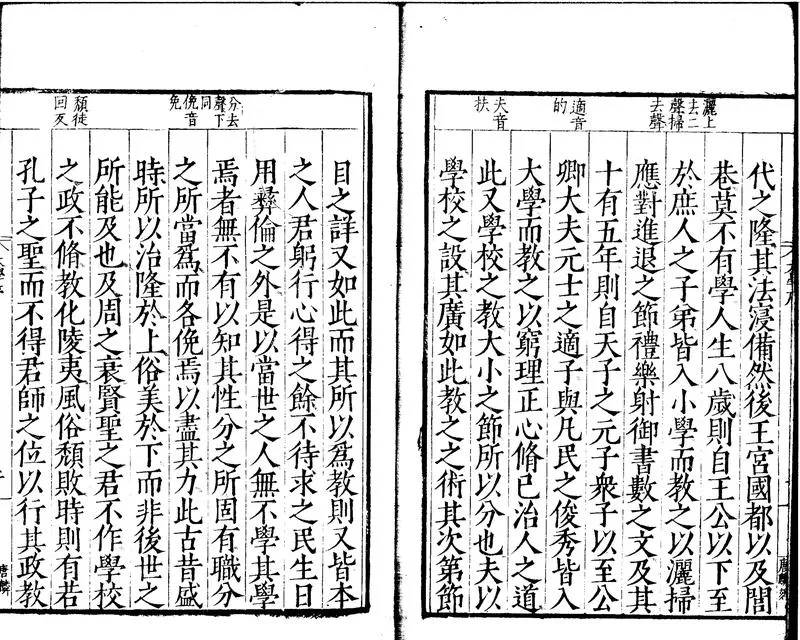 灑上
去二
聲掃
去聲
適音
的
夫音
扶
代之隆其法寖備然後王宮國都以及閭
巷莫不有學人生八歲則自王公以下至
於庶人之子弟皆入小學而教之以灑掃
應對進退之節禮樂射御書數之文及其
十有五年則自天子之元子衆子以至公
卿大夫元士之適子與凡民之俊秀皆入
大學而教之以窮理正心脩己治人之道
此又學校之教大小之節所以分也夫以
學校之設其廣如此教之之術其次第節
分去
聲下
同
俛音
免
頹徒
回反
目之詳又如此而其所以爲教則又皆本
之人君躬行心得之餘不待求之民生日
用彝倫之外是以當世之人無不學其學
焉者無不有以知其性分之所固有職分
之所當爲而各俛焉以盡其力此古昔盛
時所以治隆於上俗美於下而非後世之
所能及也及周之衰賢聖之君不作學校
之政不脩教化陵夷風俗頹敗時則有若
孔子之聖而不得君師之位以行其政教